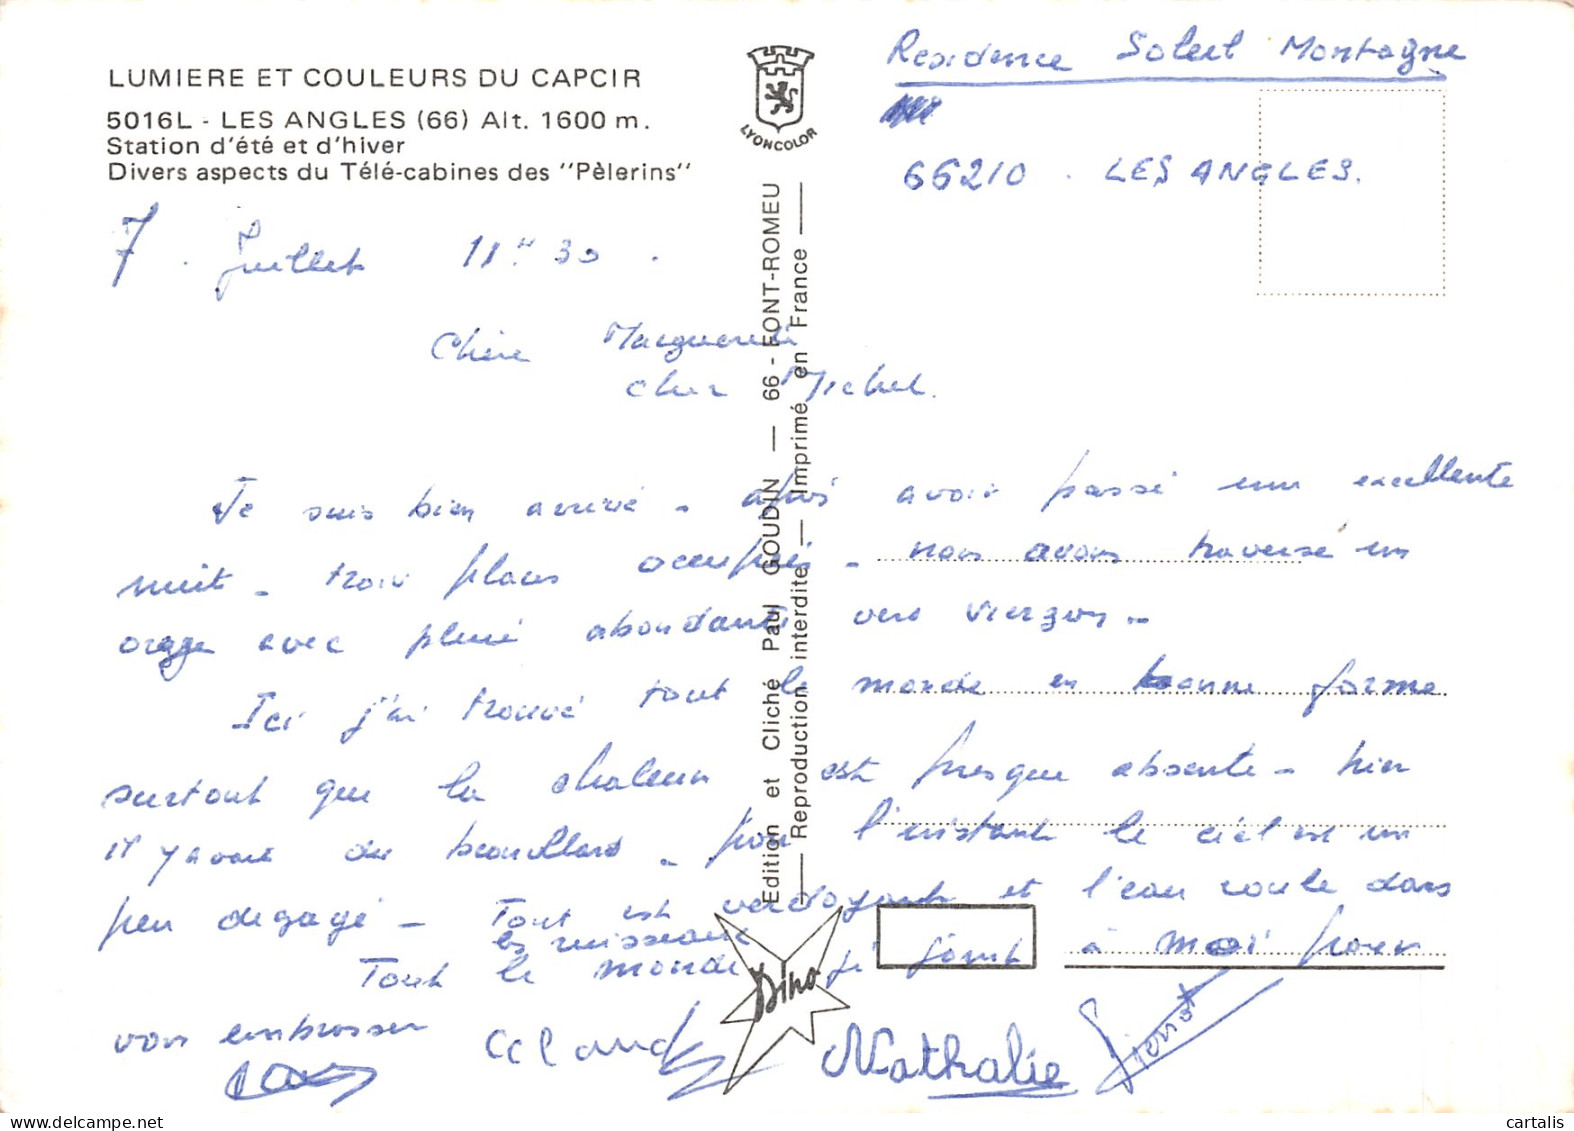 LUMIERE ET COULEURS DU CAPCIR
5016L - LES ANGLES (66) Alt. 1600 m.
Station d'été et d'hiver
Divers aspects du Télé-cabines des "Pèlerins"
LYONCOLOR
Residence Soleil Montagne
66210 . LES ANGLES.
Edition et Cliché Paul GOUDIN — 66 - FONT-ROMEU
— Reproduction interdite — Imprimé en France —
7 . Juillet 11H 30 .
Chère Marguerite
cher Michel.
Je suis bien arrivé - après avoir passé une excellente
nuit - trois places occupées - nous avons traversé un
orage avec pluie abondante vers Vierzon -
Ici j'ai trouvé tout le monde en bonne forme
surtout que la chaleur est presque absente - hier
il y avait du brouillard - pour l'instant le ciel est un
peu dégagé - Tout est verdoyant et l'eau roule dans
les ruisseaux
Tout le monde se joint à moi pour
vous embrasser
Dino
Nathalie
Pierrot
cartalis.com